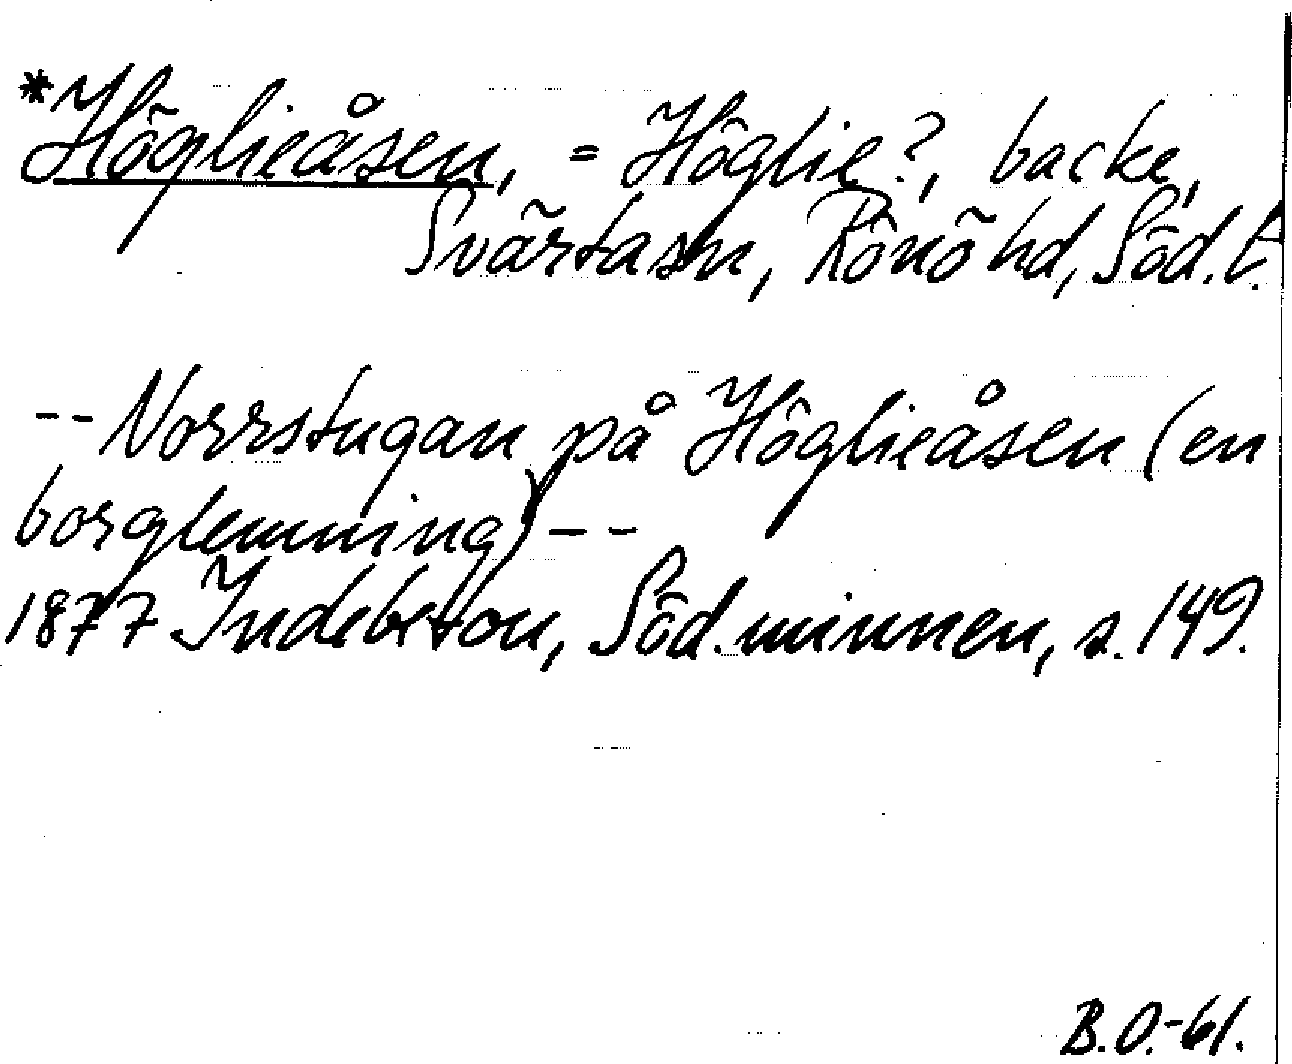 *Höglieåsen, = Höglie?, backe,
Svärta sn, Rönö hd, Söd.l.
-- Norrstugan på Höglieåsen (en
borglemning) --
1877 Indebetou, Söd.minnen, s. 149.
B.O.-61.